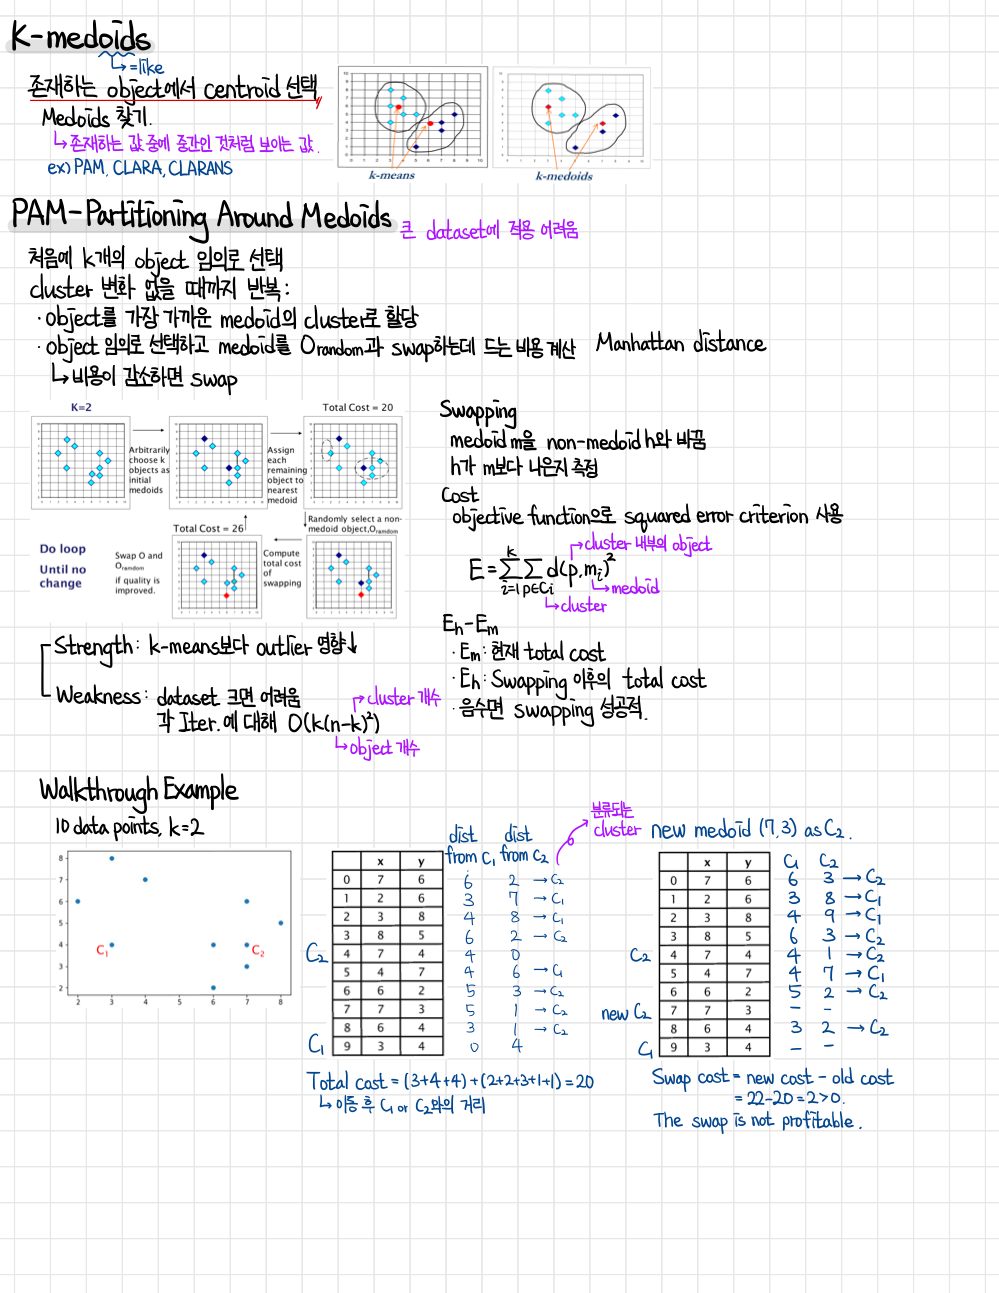 K-medoids
↳ =like
존재하는 object에서 centroid 선택
Medoids 찾기.
↳ 존재하는 값 중에 중간인 것처럼 보이는 값.
ex) PAM, CLARA, CLARANS
k-means
k-medoids
PAM-Partitioning Around Medoids
큰 dataset에 적용 어려움
처음에 k개의 object 임의로 선택
cluster 변화 없을 때까지 반복:
· object를 가장 가까운 medoid의 cluster로 할당
· object 임의로 선택하고 medoid를 Orandom과 swap하는데 드는 비용 계산 Manhattan distance
↳ 비용이 감소하면 swap
K=2
Total Cost = 20
Arbitrarily choose k objects as initial medoids
Assign each remaining object to nearest medoid
Randomly select a non-medoid object,Orandom
Total Cost = 26
Compute total cost of swapping
Do loop
Until no change
Swap O and Orandom
if quality is improved.
Strength: k-means보다 outlier 영향↓
Weakness: dataset 크면 어려움
각 Iter.에 대해 O(k(n-k)²)
→ cluster 개수
↳ object 개수
Swapping
medoid m을 non-medoid h와 바꿈
h가 m보다 나은지 측정
Cost
objective function으로 squared error criterion 사용
→ cluster 내부의 object
E = Σ(i=1, k) Σ(p∈Ci) d(p, mi)²
↳ medoid
↳ cluster
Eh - Em
· Em: 현재 total cost
· Eh: Swapping 이후의 total cost
· 음수면 swapping 성공적.
Walkthrough Example
10 data points, k=2
8
7
6
5
4
3
2
2 3 4 5 6 7 8
C1
C2
분류되는 cluster
dist from C1 dist from C2
x y
0 7 6 6 2 → C2
1 2 6 3 7 → C1
2 3 8 4 8 → C1
3 8 5 6 2 → C2
C2 4 7 4 4 0
5 4 7 4 6 → C1
6 6 2 5 3 → C2
7 7 3 5 1 → C2
8 6 4 3 1 → C2
C1 9 3 4 0 4
Total cost = (3+4+4)+(2+2+3+1+1) = 20
↳ 이동 후 C1 or C2와의 거리
new medoid (7,3) as C2.
x y C1 C2
0 7 6 6 3 → C2
1 2 6 3 8 → C1
2 3 8 4 9 → C1
3 8 5 6 3 → C2
C2 4 7 4 4 1 → C2
5 4 7 4 7 → C1
6 6 2 5 2 → C2
new C2 7 7 3 - -
8 6 4 3 2 → C2
C1 9 3 4 - -
Swap cost = new cost - old cost
= 22-20 = 2 > 0.
The swap is not profitable.